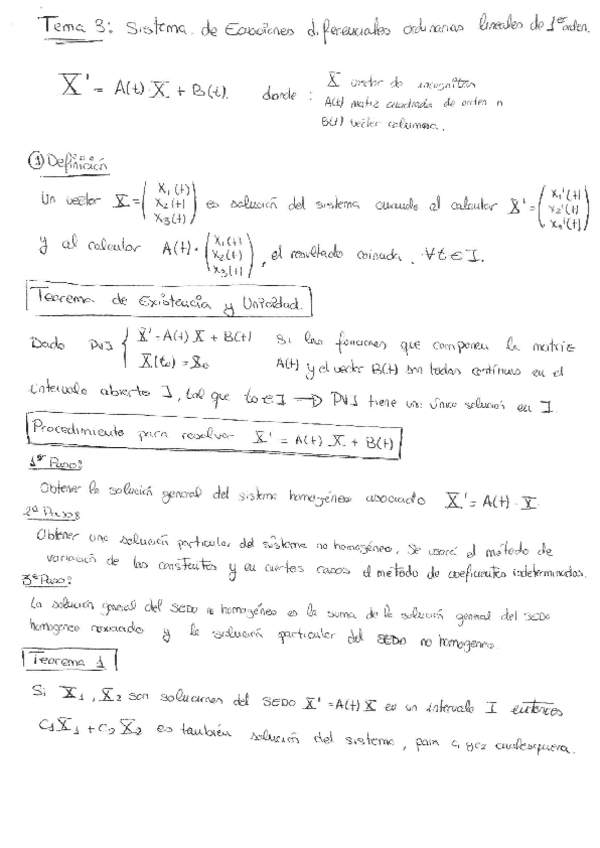 Tema 3: Sistema de Ecuaciones diferenciales ordinarias lineales de 1er orden.
X' = A(t)·X + B(t). donde : X vector de incognitas
A(t) matriz cuadrada de orden n
B(t) vector columna.
① Definición
Un vector X = (x₁(t) x₂(t) x₃(t)) es solución del sistema cuando al calcular X' = (x₁'(t) x₂'(t) x₃'(t))
y al calcular A(t)·(x₁(t) x₂(t) x₃(t)), el resultado coincida. ∀t∈I.
Teorema de Existencia y Unicidad.
Dado PVI { X' = A(t) X + B(t) Si las funciones que componen la matriz
X(t₀) = X₀ A(t) y el vector B(t) son todas continuas en el
intervalo abierto I, tal que t₀∈I → PVI tiene una única solución en I
Procedimiento para resolver X' = A(t) X + B(t)
1er Paso:
Obtener la solución general del sistema homogéneo asociado X' = A(t)·X.
2º Paso:
Obtener una solución particular del sistema no homogéneo. Se usará el método de
variación de las constantes y en ciertos casos el método de coeficientes indeterminados.
3er Paso:
La solución general del SEDO no homogéneo es la suma de la solución general del SEDO
homogeneo asociado y la solución particular del SEDO no homogeneo.
Teorema 1
Si X₁, X₂ son soluciones del SEDO X' = A(t) X en un intervalo I entonces
C₁X₁ + C₂X₂ es también solución del sistema, para c₁ y c₂ cualesquiera.